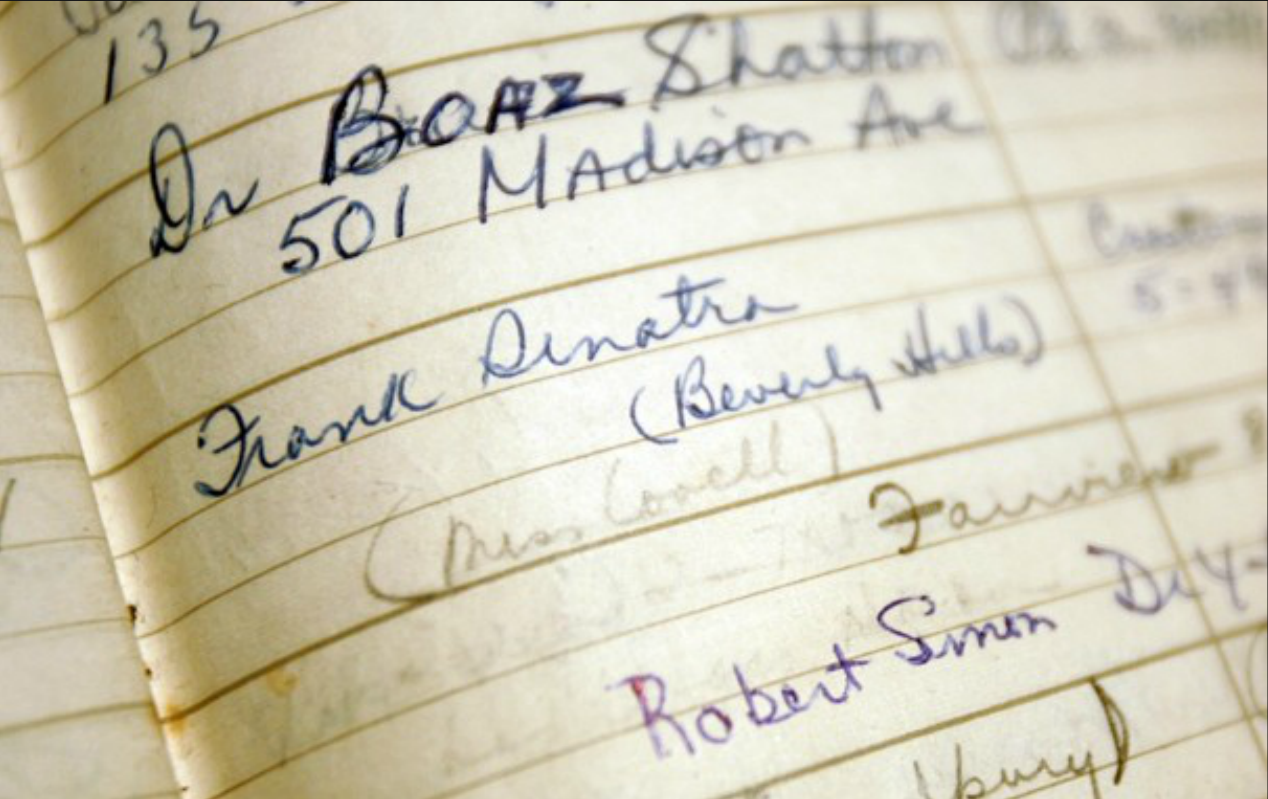 135
Dr BOAZ Shatton
501 MAdison Ave
Frank Sinatra
(Beverly Hills)
(Miss Lovell)
Fairview
Robert Simon